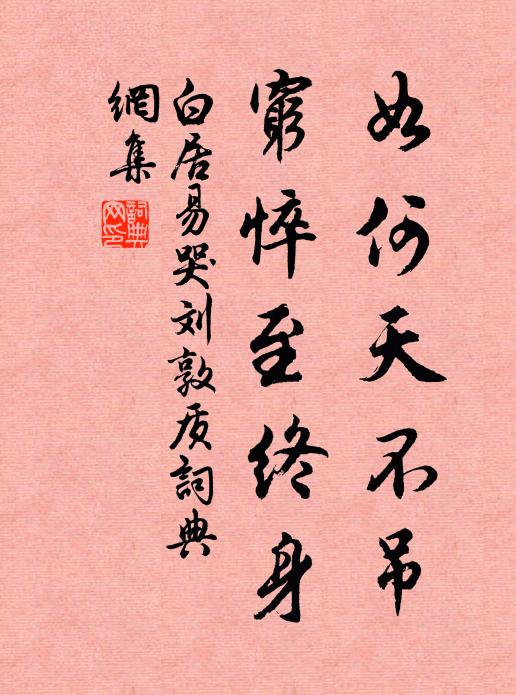 如何天不吊
窮悴至终身
白居易哭刘敦质詞典
網集
詞典
网印